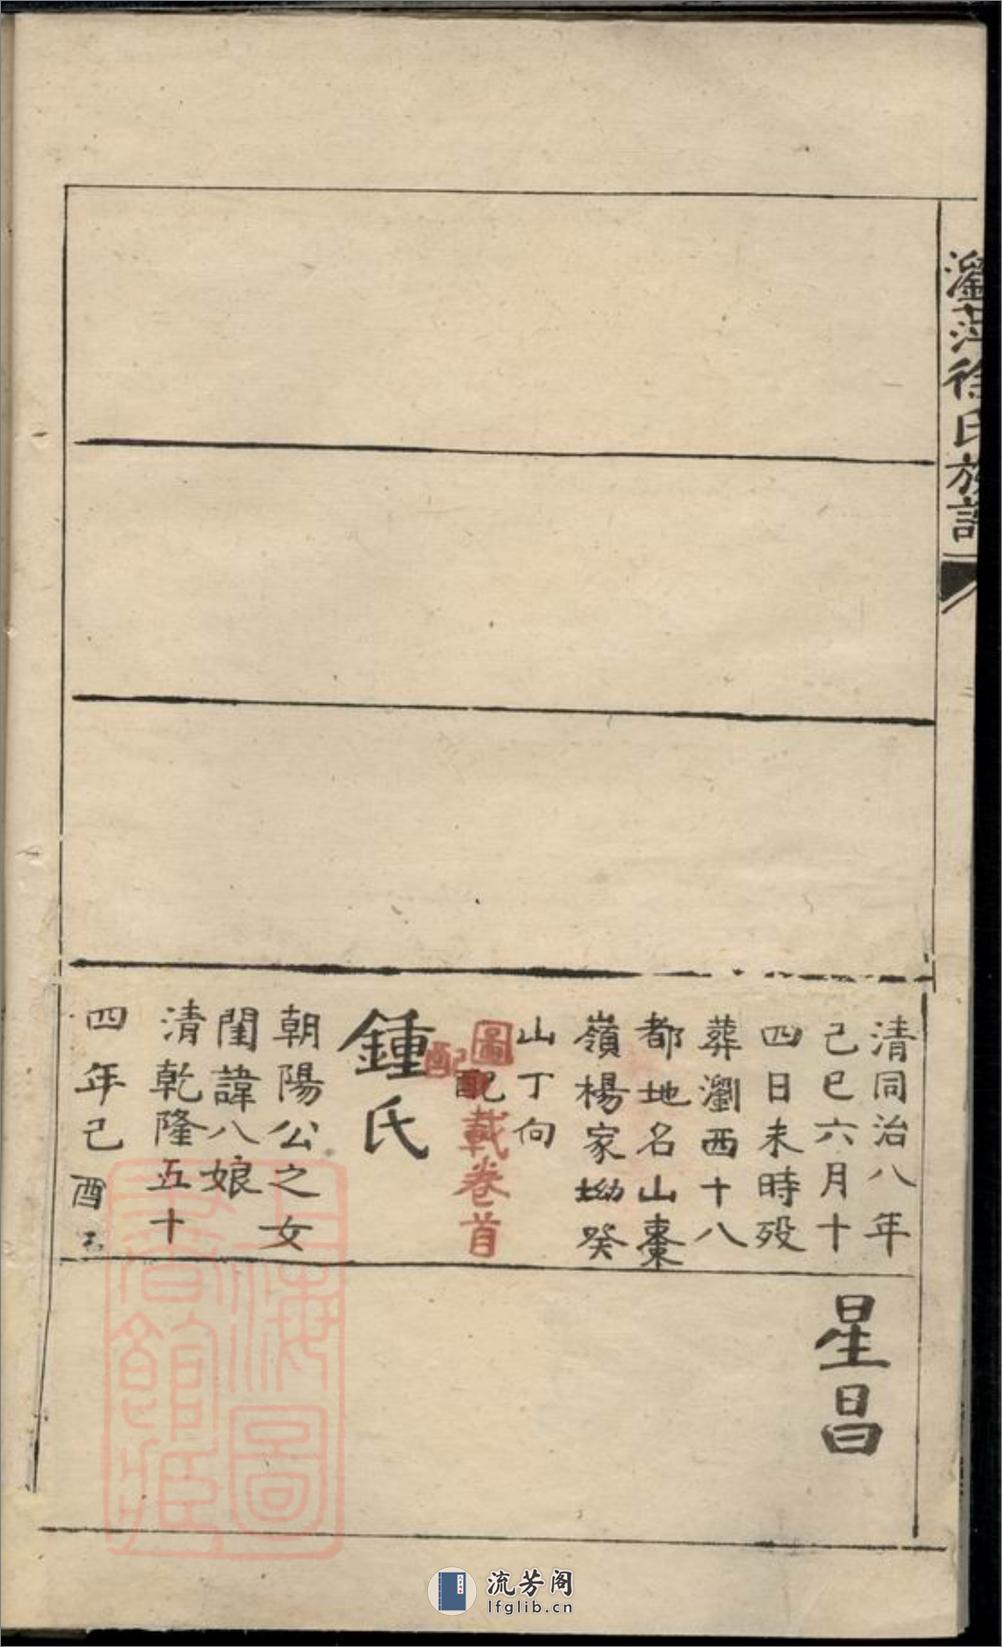 瀏萍徐氏族譜
清同治八年
己巳六月十
四日未時殁
葬瀏西十八
都地名山棗
嶺楊家坳癸
山丁向
圖記載卷首
配
鍾氏
朝陽公之女
閨諱八娘
清乾隆五十
四年己酉
星昌
上海圖
書館藏
流芳阁
lfglib.cn